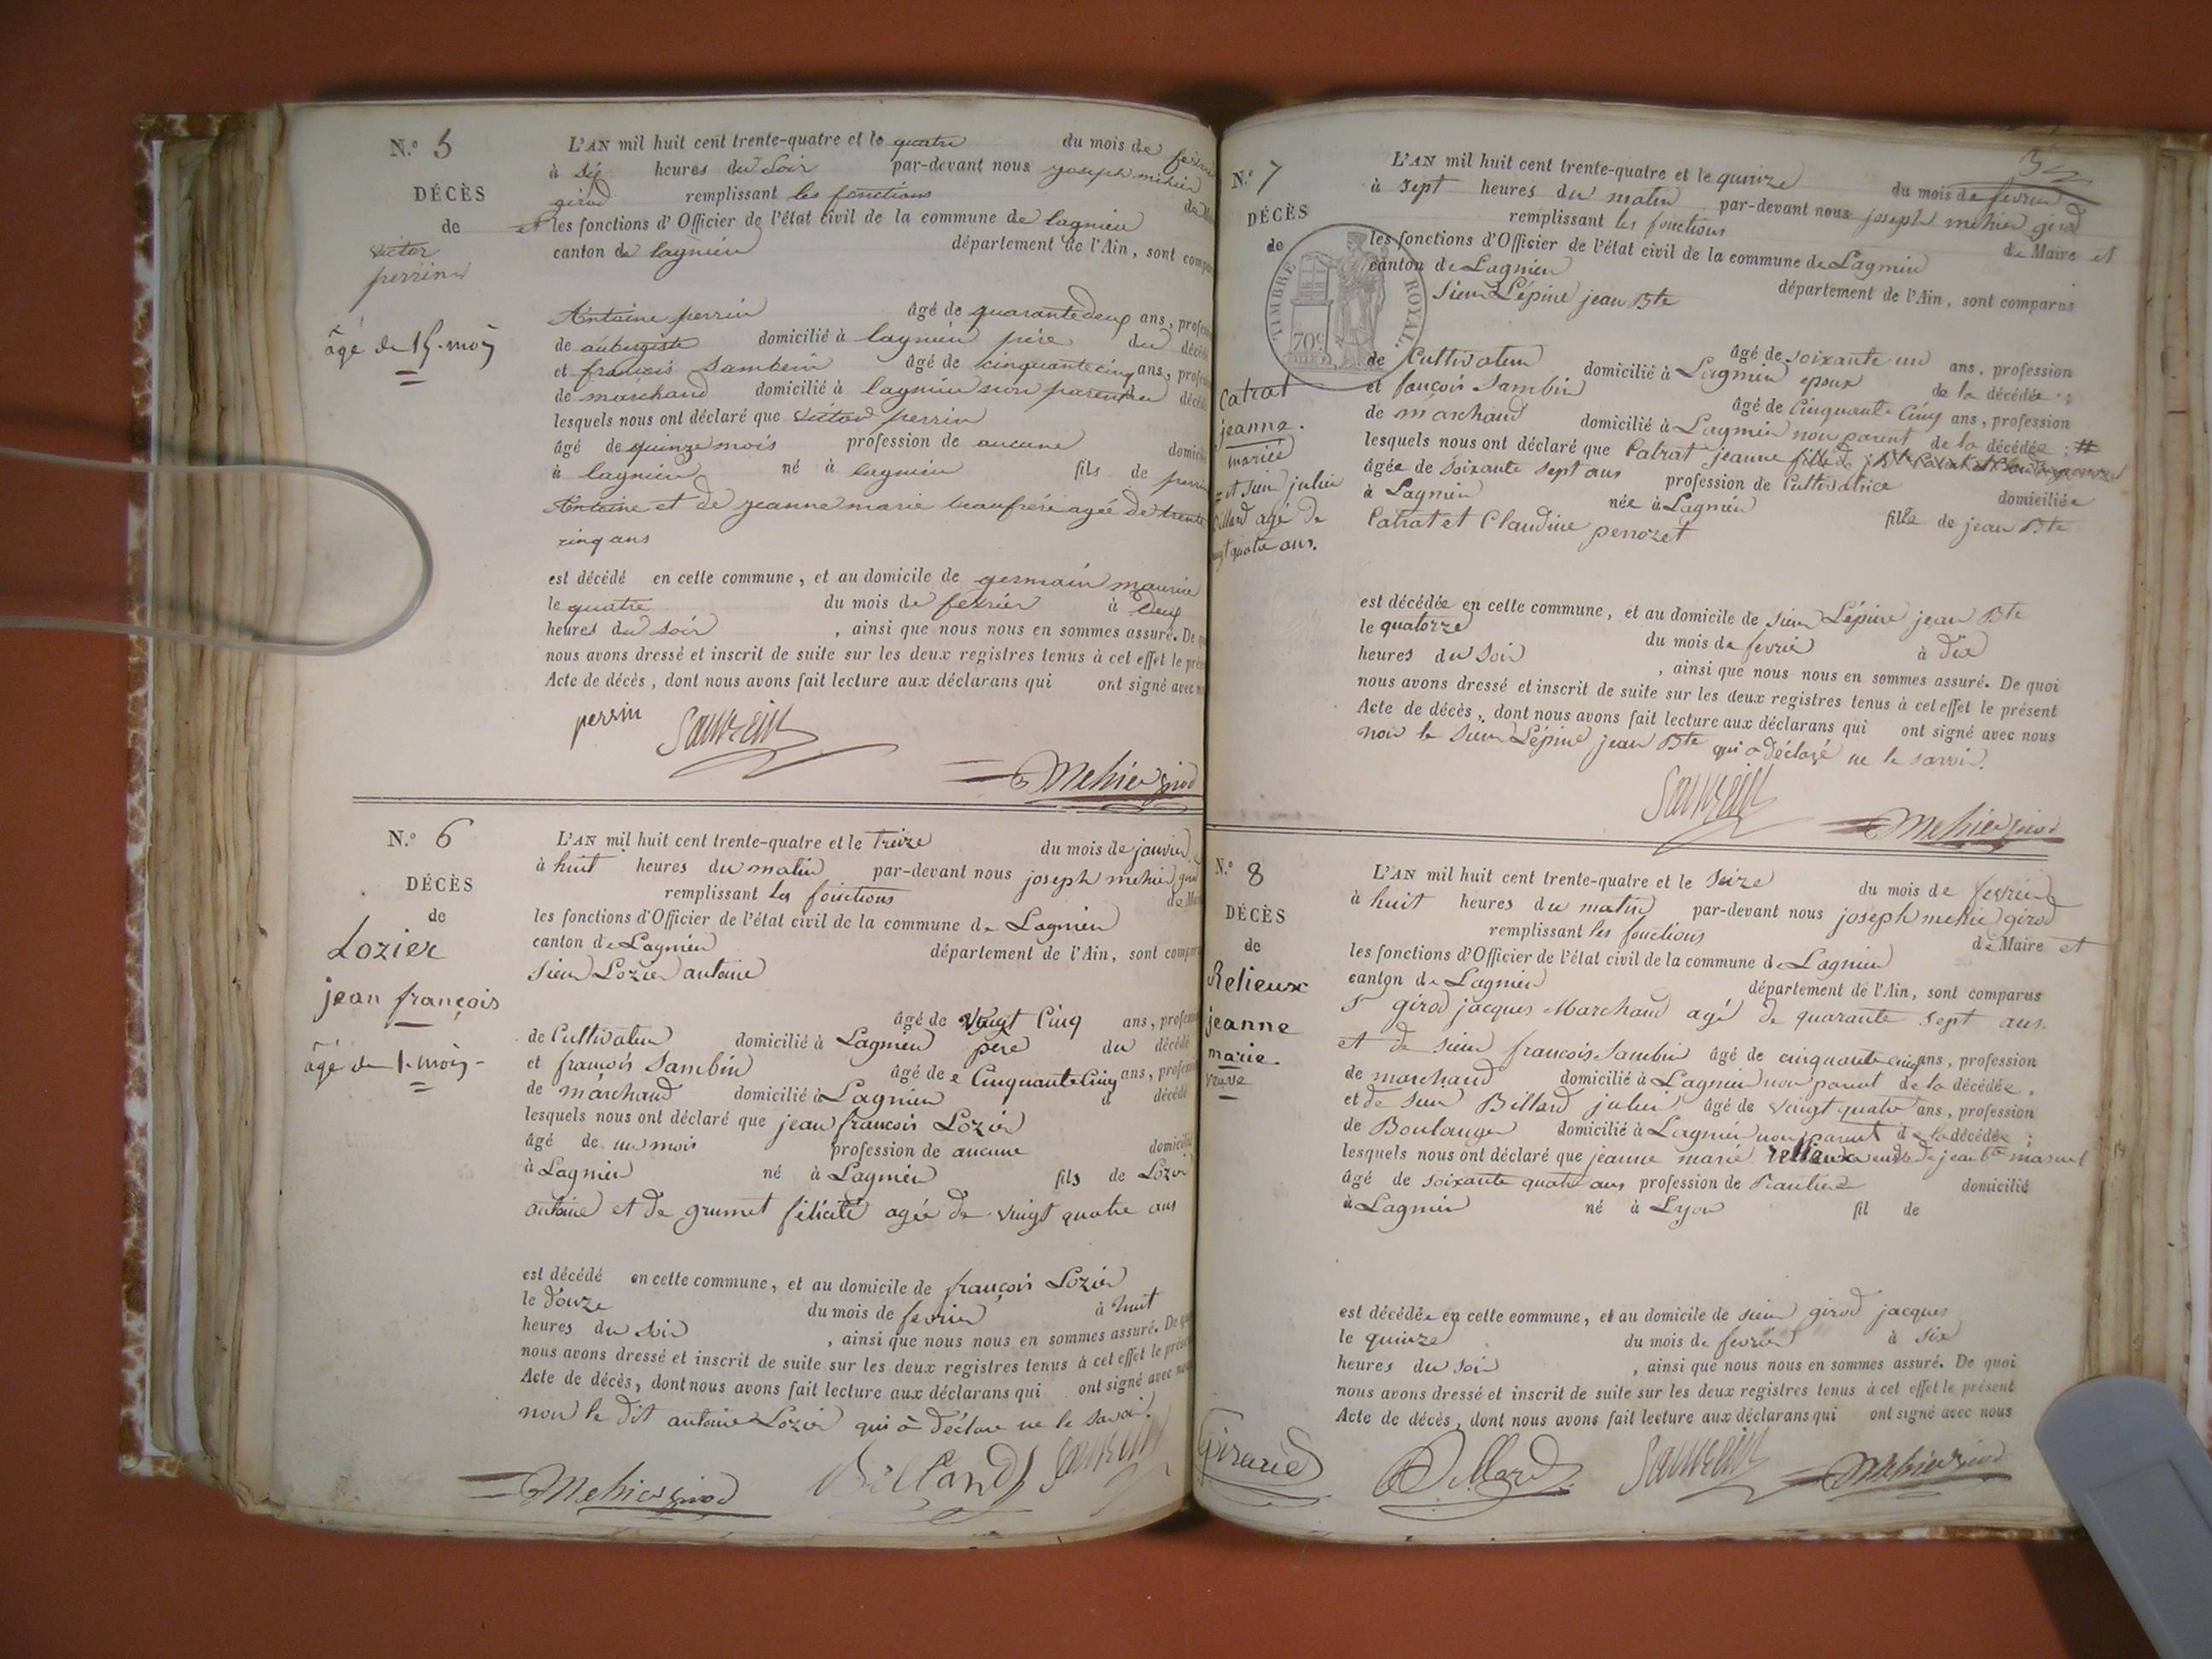 N.º 5
DÉCÈS
de
victor
perrin
âgé de 15 mois
L'AN mil huit cent trente-quatre et le quatre du mois de fevrier
à dix heures du soir par-devant nous joseph mehier
girod remplissant les fonctions de
et les fonctions d'Officier de l'état civil de la commune de lagnieu
canton de lagnieu département de l'Ain, sont
Antoine perrin âgé de quarante deux ans,
de aubergiste domicilié à lagnieu père du
et francois Sambein âgé de cinquante cinq ans,
de marchand domicilié à lagnieu non parent du
lesquels nous ont déclaré que victor perrin
âgé de quinze mois profession de aucune
à lagnieu né à lagnieu fils de perrin
Antoine et de jeanne marie beaufrère agée de trente
cinq ans
est décédé en cette commune, et au domicile de germain maurice
le quatre du mois de fevrier à deux
heures du soir , ainsi que nous nous en sommes assuré. De
nous avons dressé et inscrit de suite sur les deux registres tenus à cet effet le
Acte de décès, dont nous avons fait lecture aux déclarans qui ont signé avec
perrin
Mehier girod
N.º 6
DÉCÈS
de
Lozier
jean françois
âgé de 1 mois
L'AN mil huit cent trente-quatre et le treize du mois de janvier
à huit heures du matin par-devant nous joseph mehier girod
remplissant les fonctions de
les fonctions d'Officier de l'état civil de la commune de Lagnieu
canton de Lagnieu département de l'Ain, sont
sieur Lozier antoine
âgé de vingt cinq ans,
de Cultivateur domicilié à Lagnieu père du décédé
et francois Sambin âgé de Cinquante Cinq ans,
de marchand domicilié à Lagnieu d décédé
lesquels nous ont déclaré que jean francois Lozier
âgé de un mois profession de aucune domicilié
à Lagnieu né à Lagnieu fils de Lozier
antoine et de grumet félicité agée de vingt quatre ans
est décédé en cette commune, et au domicile de françois Lozier
le douze du mois de fevrier à huit
heures du soir , ainsi que nous nous en sommes assuré. De
nous avons dressé et inscrit de suite sur les deux registres tenus à cet effet le
Acte de décès, dont nous avons fait lecture aux déclarans qui ont signé avec
non le dit antoine Lozier qui a déclaré ne le savoir.
Mehier girod Billand
N.º 7
DÉCÈS
de
TIMBRE ROYAL.
70c
Catrat
jeanne.
mariée
et sieur julien
Billard agé de
vingt quatre ans.
L'AN mil huit cent trente-quatre et le quinze du mois de fevrier
à sept heures du matin par-devant nous joseph mehier girod
remplissant les fonctions de Maire et
les fonctions d'Officier de l'état civil de la commune de Lagnieu
canton de Lagnieu département de l'Ain, sont comparus
Sieur Lépine jean Bte
âgé de soixante un ans, profession
de Cultivateur domicilié à Lagnieu epoux de la décédée
et françois Sambin âgé de Cinquante Cinq ans, profession
de marchand domicilié à Lagnieu non parent de la décédée ; #
lesquels nous ont déclaré que Catrat jeanne
âgée de soixante sept ans profession de Cultivatrice domiciliée
à Lagnieu née à Lagnieu fille de jean Bte
Catrat et Claudine perrozet
est décédée en cette commune, et au domicile de sieur Lépine jean Bte
le quatorze du mois de fevrier à dix
heures du soir , ainsi que nous nous en sommes assuré. De quoi
nous avons dressé et inscrit de suite sur les deux registres tenus à cet effet le présent
Acte de décès, dont nous avons fait lecture aux déclarans qui ont signé avec nous
non le sieur Lépine jean Bte qui a déclaré ne le savoir.
Mehier girod
N.º 8
DÉCÈS
de
Relieux
jeanne
marie
veuve
L'AN mil huit cent trente-quatre et le seize du mois de fevrier
à huit heures du matin par-devant nous joseph mehier girod
remplissant les fonctions de Maire et
les fonctions d'Officier de l'état civil de la commune de Lagnieu
canton de Lagnieu département de l'Ain, sont comparus
Sr girod jacques Marchand agé de quarante sept ans
et de sieur francois Sambin âgé de cinquante cinq ans, profession
de marchand domicilié à Lagnieu non parent de la décédée,
et de sieur Billard julien âgé de vingt quatre ans, profession
de Boulanger domicilié à Lagnieu non parent de la décédée ;
lesquels nous ont déclaré que jeanne marie relieux veuve de jean bte
âgé de soixante quatre ans profession de Rentiere domicilié
à Lagnieu né à Lyon fil de
est décédée en cette commune, et au domicile de sieur girod jacques
le quinze du mois de fevrier à six
heures du soir , ainsi que nous nous en sommes assuré. De quoi
nous avons dressé et inscrit de suite sur les deux registres tenus à cet effet le présent
Acte de décès, dont nous avons fait lecture aux déclarans qui ont signé avec nous
Billard Mehier girod